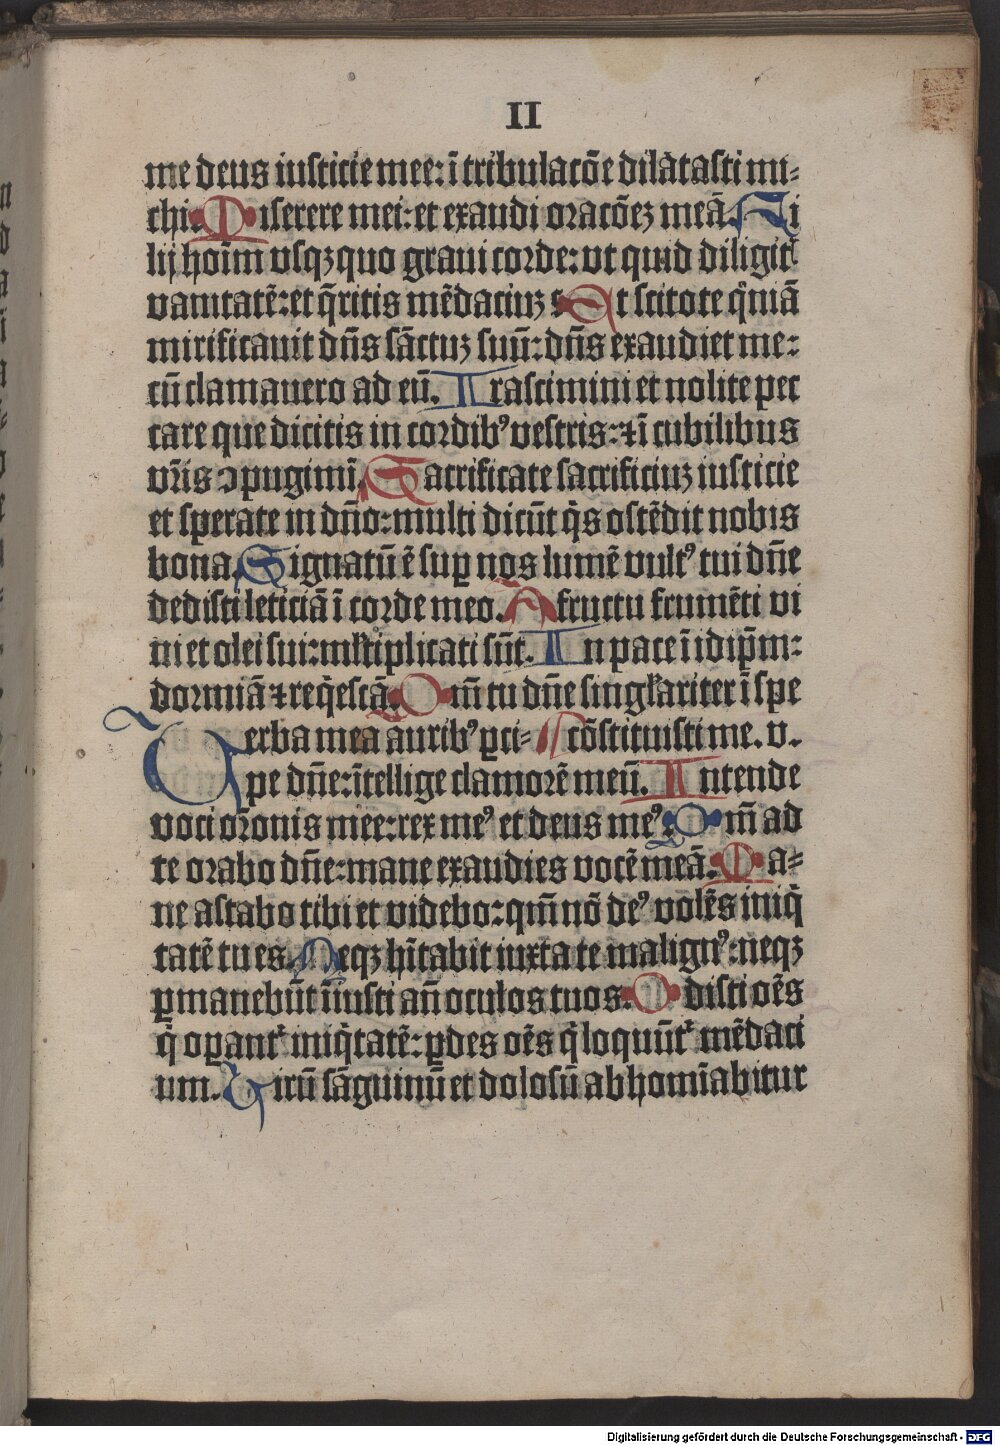 II
me deus iusticie mee: ī tribulacōe dilatasti mi⸗
chi. Miserere mei: et exaudi oracōeȝ meā. Fi
lij hoīm vsqȝquo graui corde: vt quid diligit᷑
vanitatē: et q̄ritis mēdaciuȝ Et scitote q̄niā
mirificauit dn̄s sāctuȝ suū: dn̄s exaudiet me:
cū clamauero ad eū. Irascimini et nolite pec
care que dicitis in cordibꝰ vestris: ⁊ ī cubilibus
vr̄is ↄpugimī. Sacrificate sacrificiuȝ iusticie
et sperate in dn̄o: multi dicūt q̄s ostēdit nobis
bona. Signatū ē suꝑ nos lumē vultꝰ tui dn̄e
dedisti leticiā ī corde meo. A fructu frumēti vi
ni et olei sui: ml̄tiplicati sūt. In pace ī idip̄m:
dormiā ⁊ req̄escā. Qm̄ tu dn̄e singl̄ariter ī spe
Verba mea auribꝰ ꝑci⸗ cōstituisti me. v.
pe dn̄e: ītellige clamorē meū. Intende
voci or̄onis mee: rex meꝰ et deus meꝰ. Qm̄ ad
te orabo dn̄e: mane exaudies vocē meā. Ma⸗
ne astabo tibi et videbo: qm̄ nō deꝰ volēs iniq̄
tatē tu es. Neqȝ hītabit iuxta te malignꝰ: neqȝ
ꝑmanebūt īiusti an̄ oculos tuos. Odisti oēs
q̄ oꝑant᷑ iniq̄tatē: ꝑdes oēs q̄ loquūt᷑ mēdaci
um. Virū sāguinū et dolosū abhomīabitur
Digitalisierung gefördert durch die Deutsche Forschungsgemeinschaft - DFG